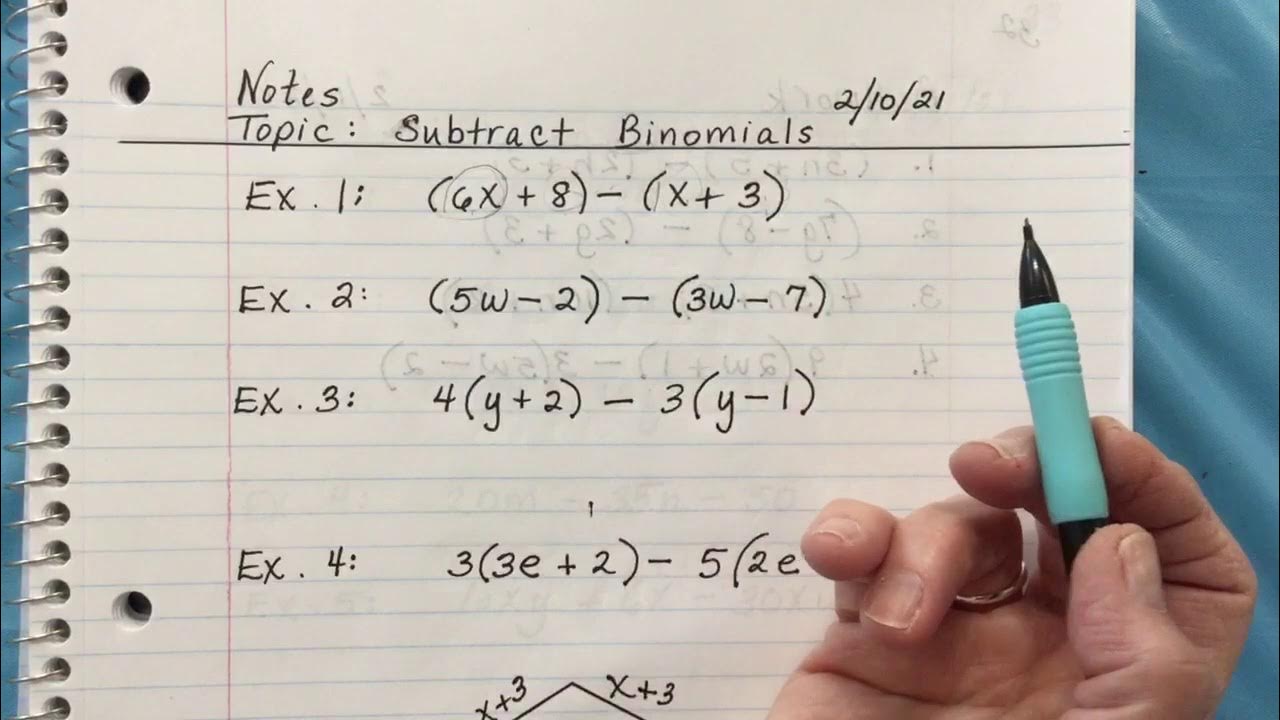 Notes
2/10/21
Topic: Subtract Binomials
Ex. 1: (6x + 8) – (x + 3)
Ex. 2: (5w – 2) – (3w – 7)
Ex. 3: 4(y + 2) – 3(y – 1)
Ex. 4: 3(3e + 2) – 5(2e
x+3 x+3